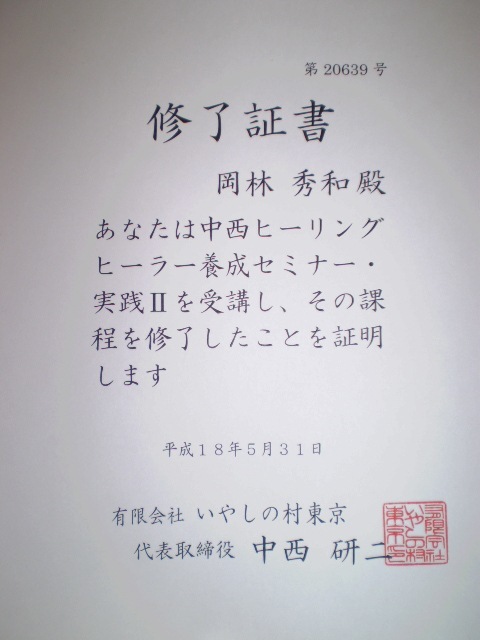 第20639号
修了証書
岡林 秀和殿
あなたは中西ヒーリング
ヒーラー養成セミナー・
実践Ⅱを受講し、その課
程を修了したことを証明
します
平成18年5月31日
有限会社 いやしの村東京
代表取締役 中西 研二
有限会社
いやしの村
東京之印